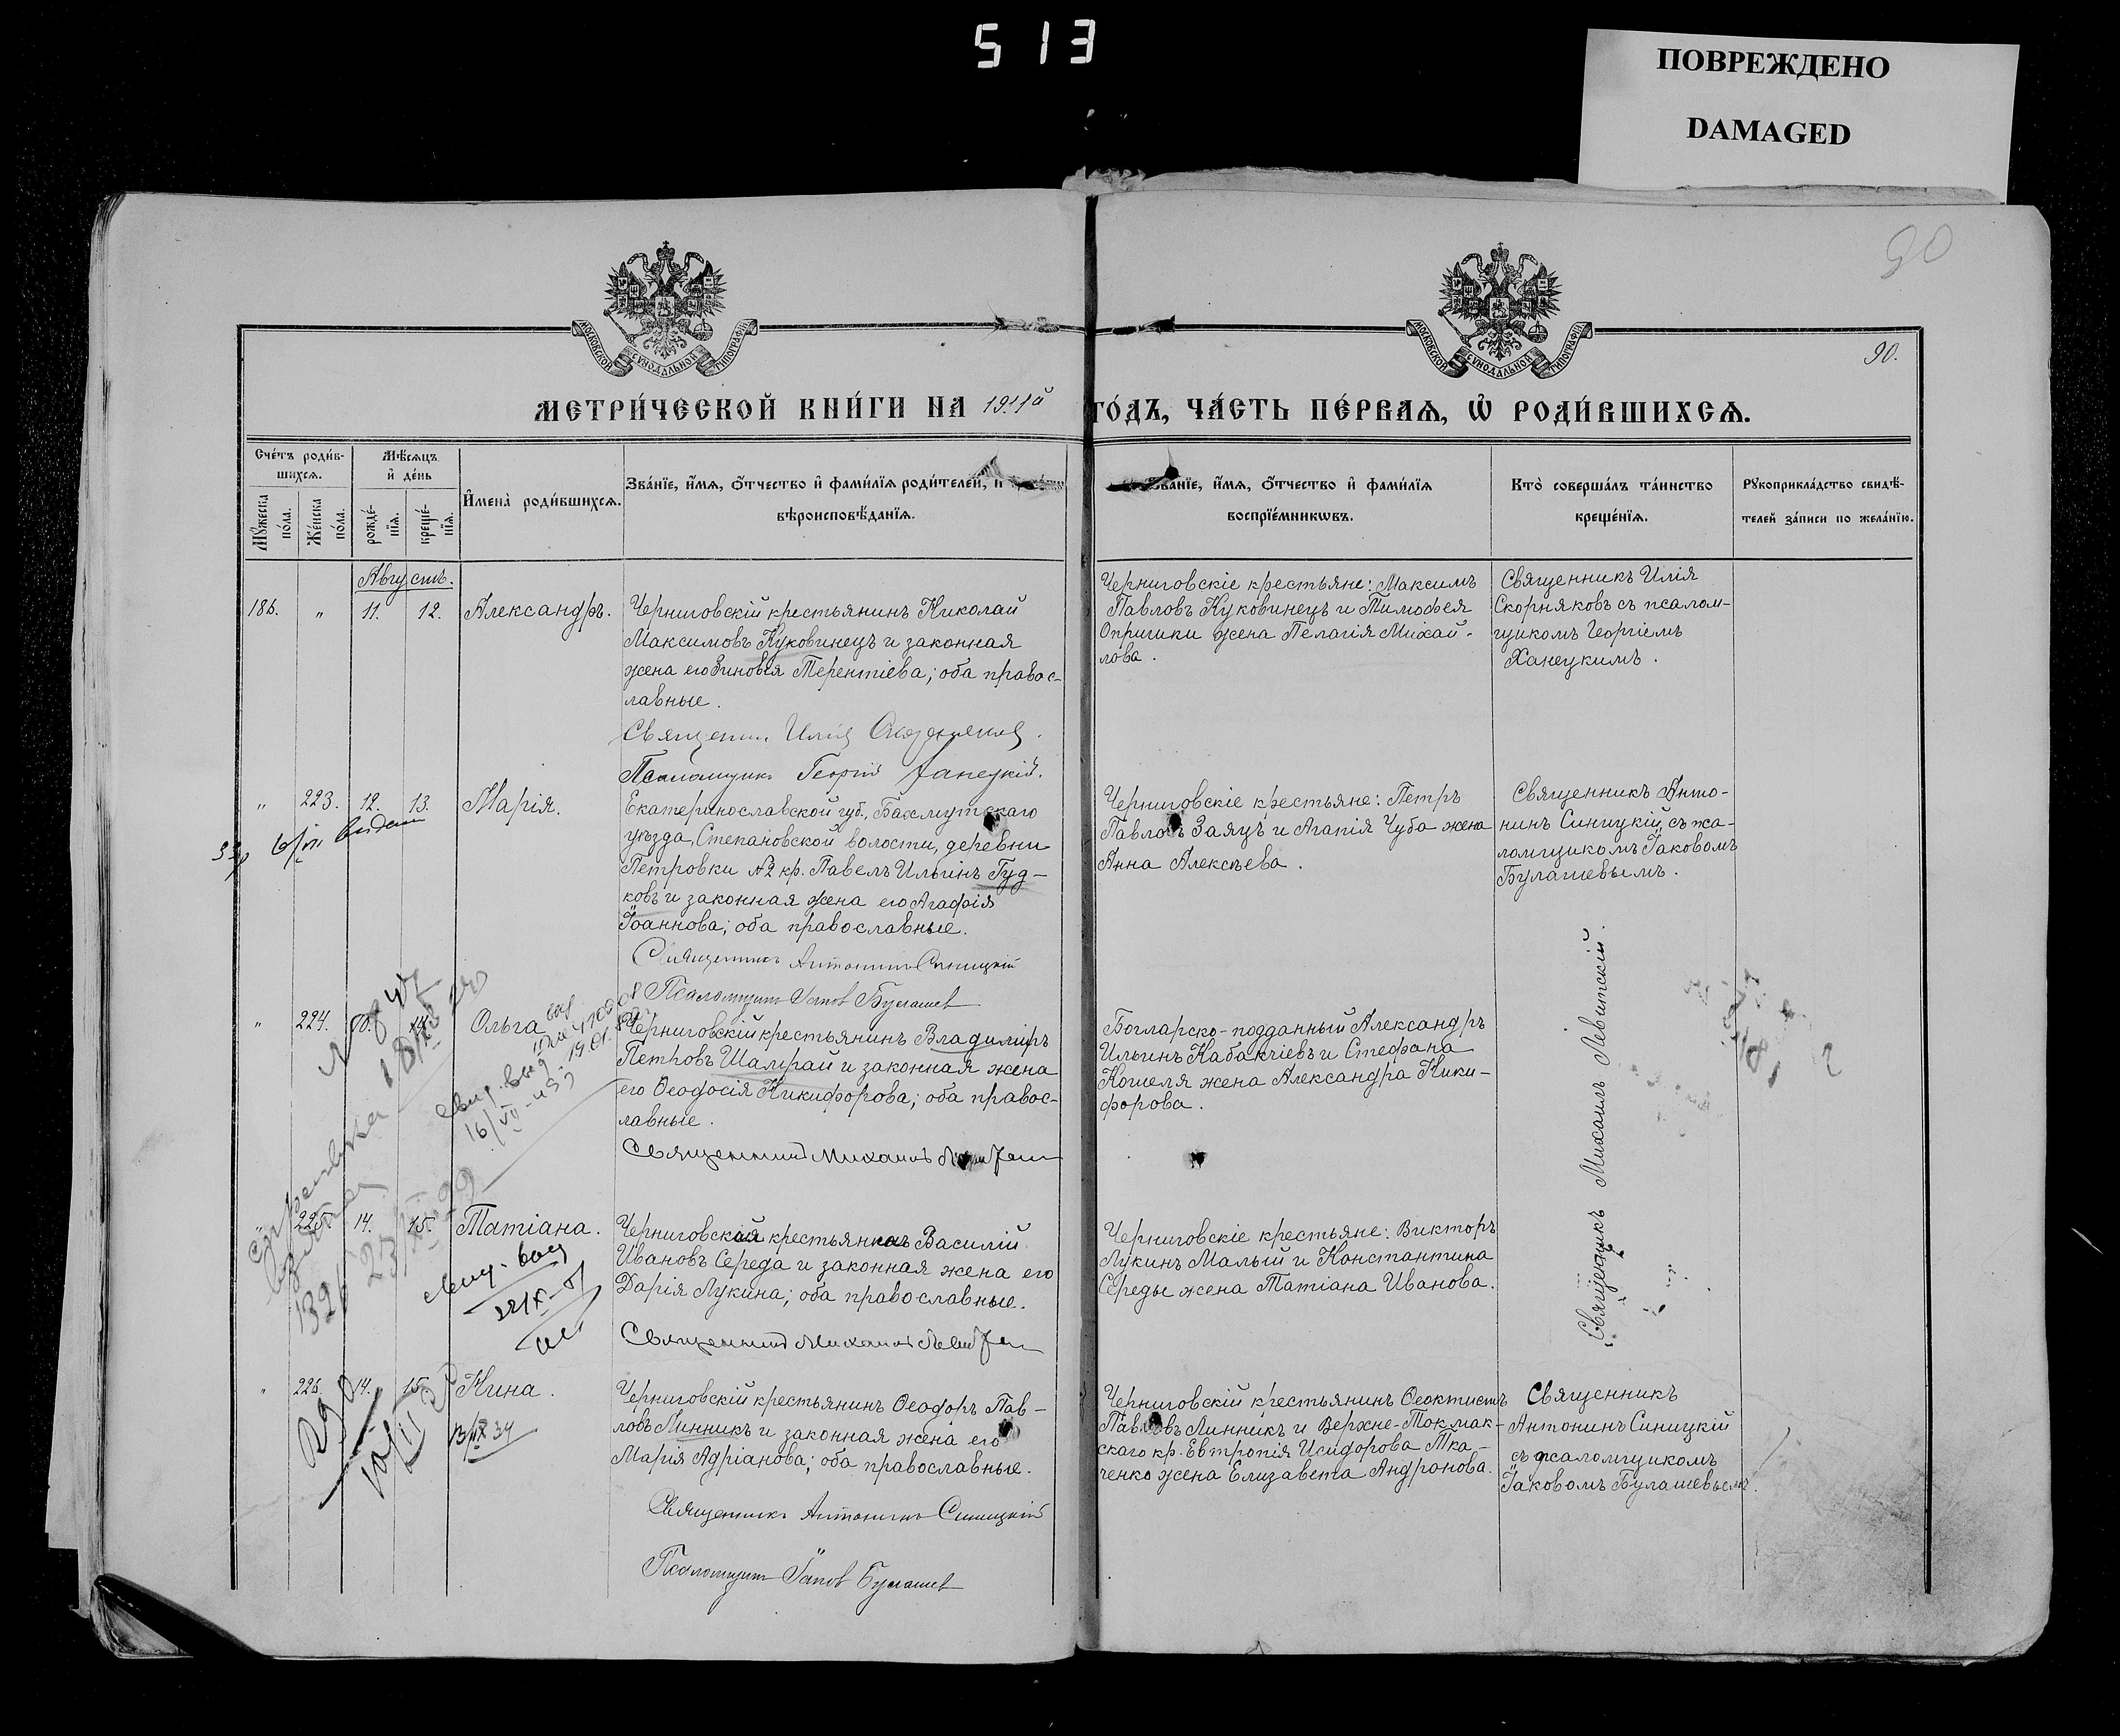 513
ПОВРЕЖДЕНО
DAMAGED
90
90.
МОСКОВСКОЙ СѴНОДАЛЬНОЙ ТИПОГРАФІИ
МОСКОВСКОЙ СѴНОДАЛЬНОЙ ТИПОГРАФІИ
МЕТРИ́ЧЕСКОЙ КНИ́ГИ НА 1911й ГО́ДЪ, ЧА́СТЬ ПЕ́РВАѦ, Ѡ҆ РОДИ́ВШИХСѦ.
Сче́тъ роди́в-
шихсѧ.
Мѣ́сѧцъ
и҆ де́нь
Мꙋ́жеска по́ла.
Же́нска по́ла.
рожде́-нїѧ.
креще́-нїѧ.
И҆мена̀ роди́вшихсѧ.
Зва́нїе, и҆́мѧ, о҆́тчество и҆ фами́лїѧ роди́телей, и҆
вѣроисповѣ́данїѧ.
Зва́нїе, и҆́мѧ, о҆́тчество и҆ фами́лїѧ
воспрїе́мникѡвъ.
Кто̀ соверша́лъ та́инство
креще́нїѧ.
Рꙋкоприкла́дство свидѣ́-
телей за́писи по жела́нїю.
Августъ.
186. " 11. 12. Александръ.
Черниговскій крестьянинъ Николай
Максимовъ Куковинецъ и законная
жена его Зиновія Терентіева; оба правос-
лавные.
Священн. Илія Скорняковъ.
Псаломщикъ Георгій Ханецкій.
Черниговскіе крестьяне: Максимъ
Павловъ Куковинецъ и Тимофея
Опришки жена Пелагія Михай-
лова.
Священникъ Илія
Скорняковъ съ псалом-
щикомъ Георгіемъ
Ханецкимъ.
" 223. 12. 13. Марія.
Екатеринославской губ., Бахмутскаго
уѣзда, Степановской волости, деревни
Петровки №2 кр. Павелъ Ильинъ Гуд-
ковъ и законная жена его Агафія
Іоаннова; оба православные.
Священникъ Антонинъ Синицкій
Псаломщикъ Іаковъ Булашев
Черниговскіе крестьяне: Петръ
Павловъ Заяцъ и Агапія Чуба жена
Анна Алексѣева.
Священникъ Анто-
нинъ Синицкій съ пса-
ломщикомъ Іаковомъ
Булашевымъ.
" 224. 10. 14. Ольга
Черниговскій крестьянинъ Владиміръ
Петровъ Шамрай и законная жена
его Ѳеодосія Никифорова; оба правос-
лавные.
Священникъ Михаилъ
Богларско-подданный Александръ
Ильинъ Кабакчіевъ и Стефана
Кошеля жена Александра Ники-
форова.
Священникъ Михаилъ Левитскій.
" 225. 14. 15. Татіана.
Черниговскій крестьянинъ Василій
Ивановъ Середа и законная жена его
Дарія Лукина; оба православные.
Священникъ Михаилъ
Черниговскіе крестьяне: Викторъ
Лукинъ Малый и Константина
Середы жена Татіана Иванова.
" 226. 14. 15. Нина.
13/IX 34
Черниговскій крестьянинъ Ѳеодоръ Пав-
ловъ Линникъ и законная жена его
Марія Адріанова; оба православные.
Священникъ Антонинъ Синицкій
Псаломщикъ Іаковъ Булашев
Черниговскій крестьянинъ Ѳеоктистъ
Павловъ Линникъ и Верхне-Токмак-
скаго кр. Евтропія Исидорова Тка-
ченко жена Елизавета Андронова.
Священникъ
Антонинъ Синицкій
съ псаломщикомъ
Іаковомъ Булашевымъ.